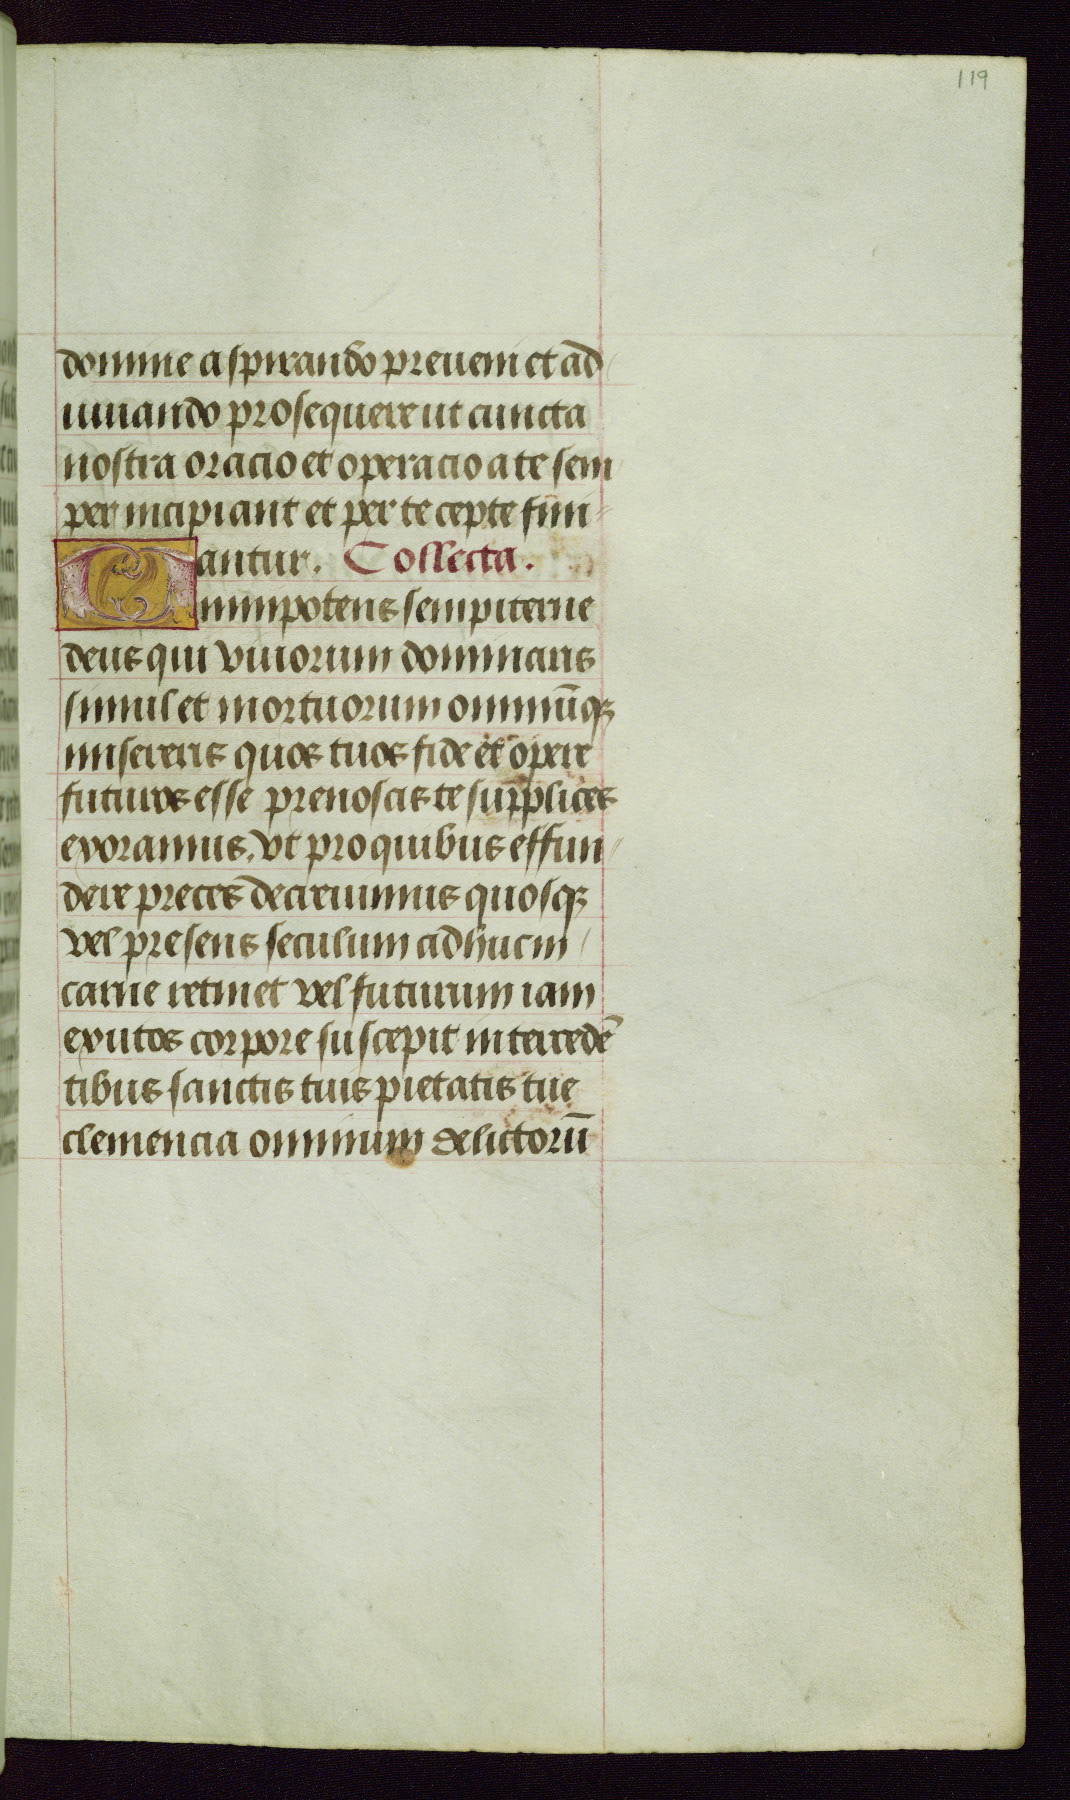 119
domine aspirando preueni et ad
iuuando prosequere ut cuncta
nostra oracio et operacio a te sem
per incipiant et per te cepte fini
antur. Collecta.
Omnipotens sempiterne
deus qui viuorum dominaris
simul et mortuorum omniūq;
misereris quos tuos fide et opere
futuros esse prenoscis te supplices
exoramus. vt pro quibus effun
dere preces decreuimus quosq;
vel presens seculum adhuc in
carne retinet vel futurum iam
exutos corpore suscepit intercedē
tibus sanctis tuis pietatis tue
clemencia omnium delictorū